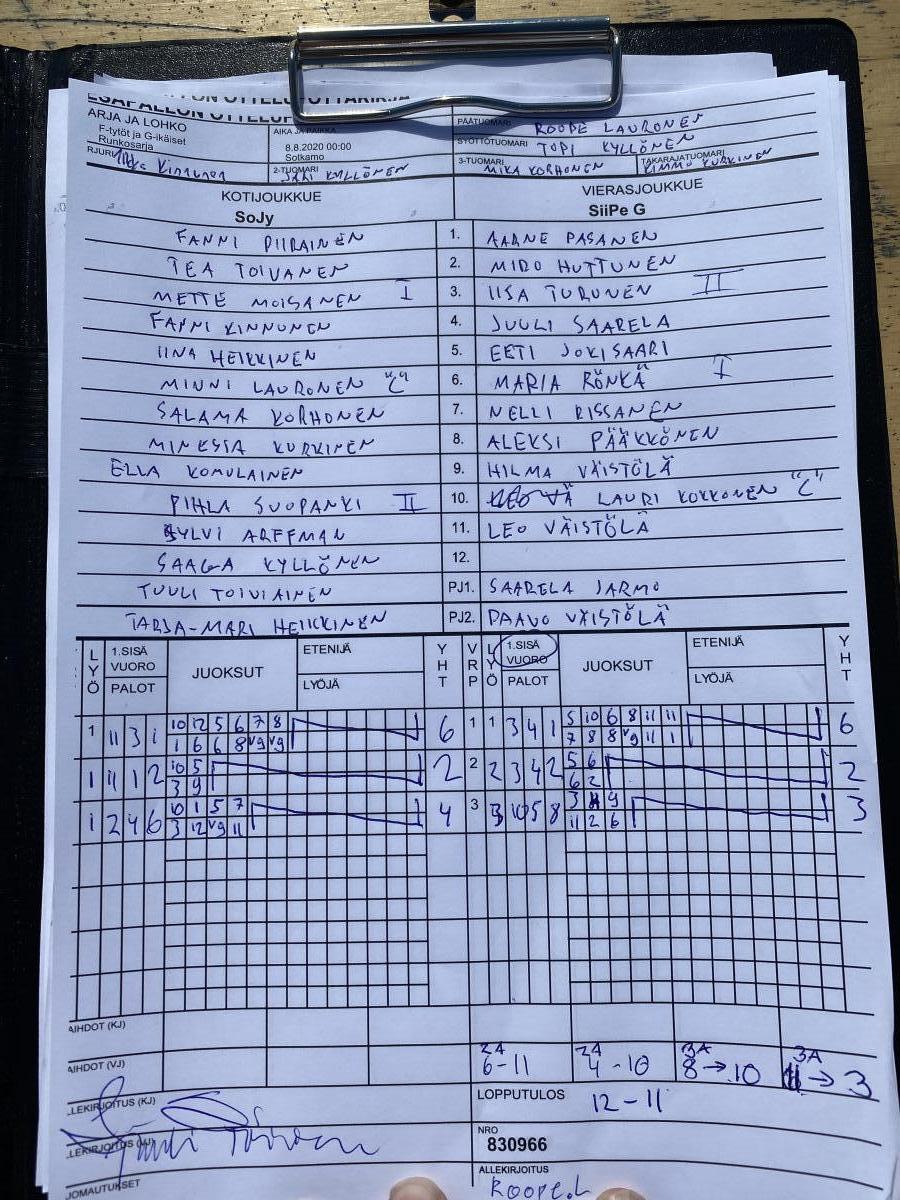 ARJA JA LOHKO
F-tytöt ja G-ikäiset
Runkosarja
AIKA JA PAIKKA
8.8.2020 00:00
Sotkamo
PÄÄTUOMARI ROOPE LAURONEN
SYÖTTÖTUOMARI TOPI KYLLÖNEN
RJURI
2-TUOMARI JARI KYLLÖNEN
3-TUOMARI MIKA KORHONEN
TAKARAJATUOMARI KIMMO KURKINEN
KOTIJOUKKUE
SoJy
VIERASJOUKKUE
SiiPe G
FANNI PIIRAINEN 1. AARNE PASANEN
TEA TOIVANEN 2. MIRO HUTTUNEN
METTE MOISANEN I 3. IISA TURUNEN II
FANNI KINNUNEN 4. JUULI SAARELA
IINA HEIKKINEN 5. EETI JOKISAARI
MINNI LAURONEN "C" 6. MARIA RÖNKÄ I
SALAMA KORHONEN 7. NELLI RISSANEN
MINESSA KURKINEN 8. ALEKSI PÄÄKKÖNEN
ELLA KOMULAINEN 9. HILMA VÄISTÖLÄ
PIHLA SUOPANKI II 10. LAURI KOKKONEN "C"
SYLVI ARFFMAN 11. LEO VÄISTÖLÄ
SAAGA KYLLÖNEN 12.
TUULI TOIVIAINEN PJ1. SAARELA JARMO
TARJA-MARI HEIKKINEN PJ2. PAAVO VÄISTÖLÄ
LYÖ 1.SISÄ VUORO PALOT JUOKSUT ETENIJÄ LYÖJÄ YHT VRP LYÖ 1.SISÄ VUORO PALOT JUOKSUT ETENIJÄ LYÖJÄ YHT
1 11 3 1 10 12 5 6 7 8 6 1 1 3 4 1 5 10 6 8 11 11 6
1 6 6 8 v9 v9 7 8 8 v9 11 1
1 11 1 2 10 5 2 2 2 3 4 2 5 6 2
3 9 6 2
1 2 4 6 10 1 5 7 4 3 9 10 5 8 3 9 3
3 12 v9 11 11 2 6
AIHDOT (KJ)
AIHDOT (VJ) 2A 6-11 2A 4-10 3A 8→10 3A → 3
LLEKIRJOITUS (KJ)
LOPPUTULOS 12-11
NRO
830966
ALLEKIRJOITUS
Roope.L
JOMAUTUKSET